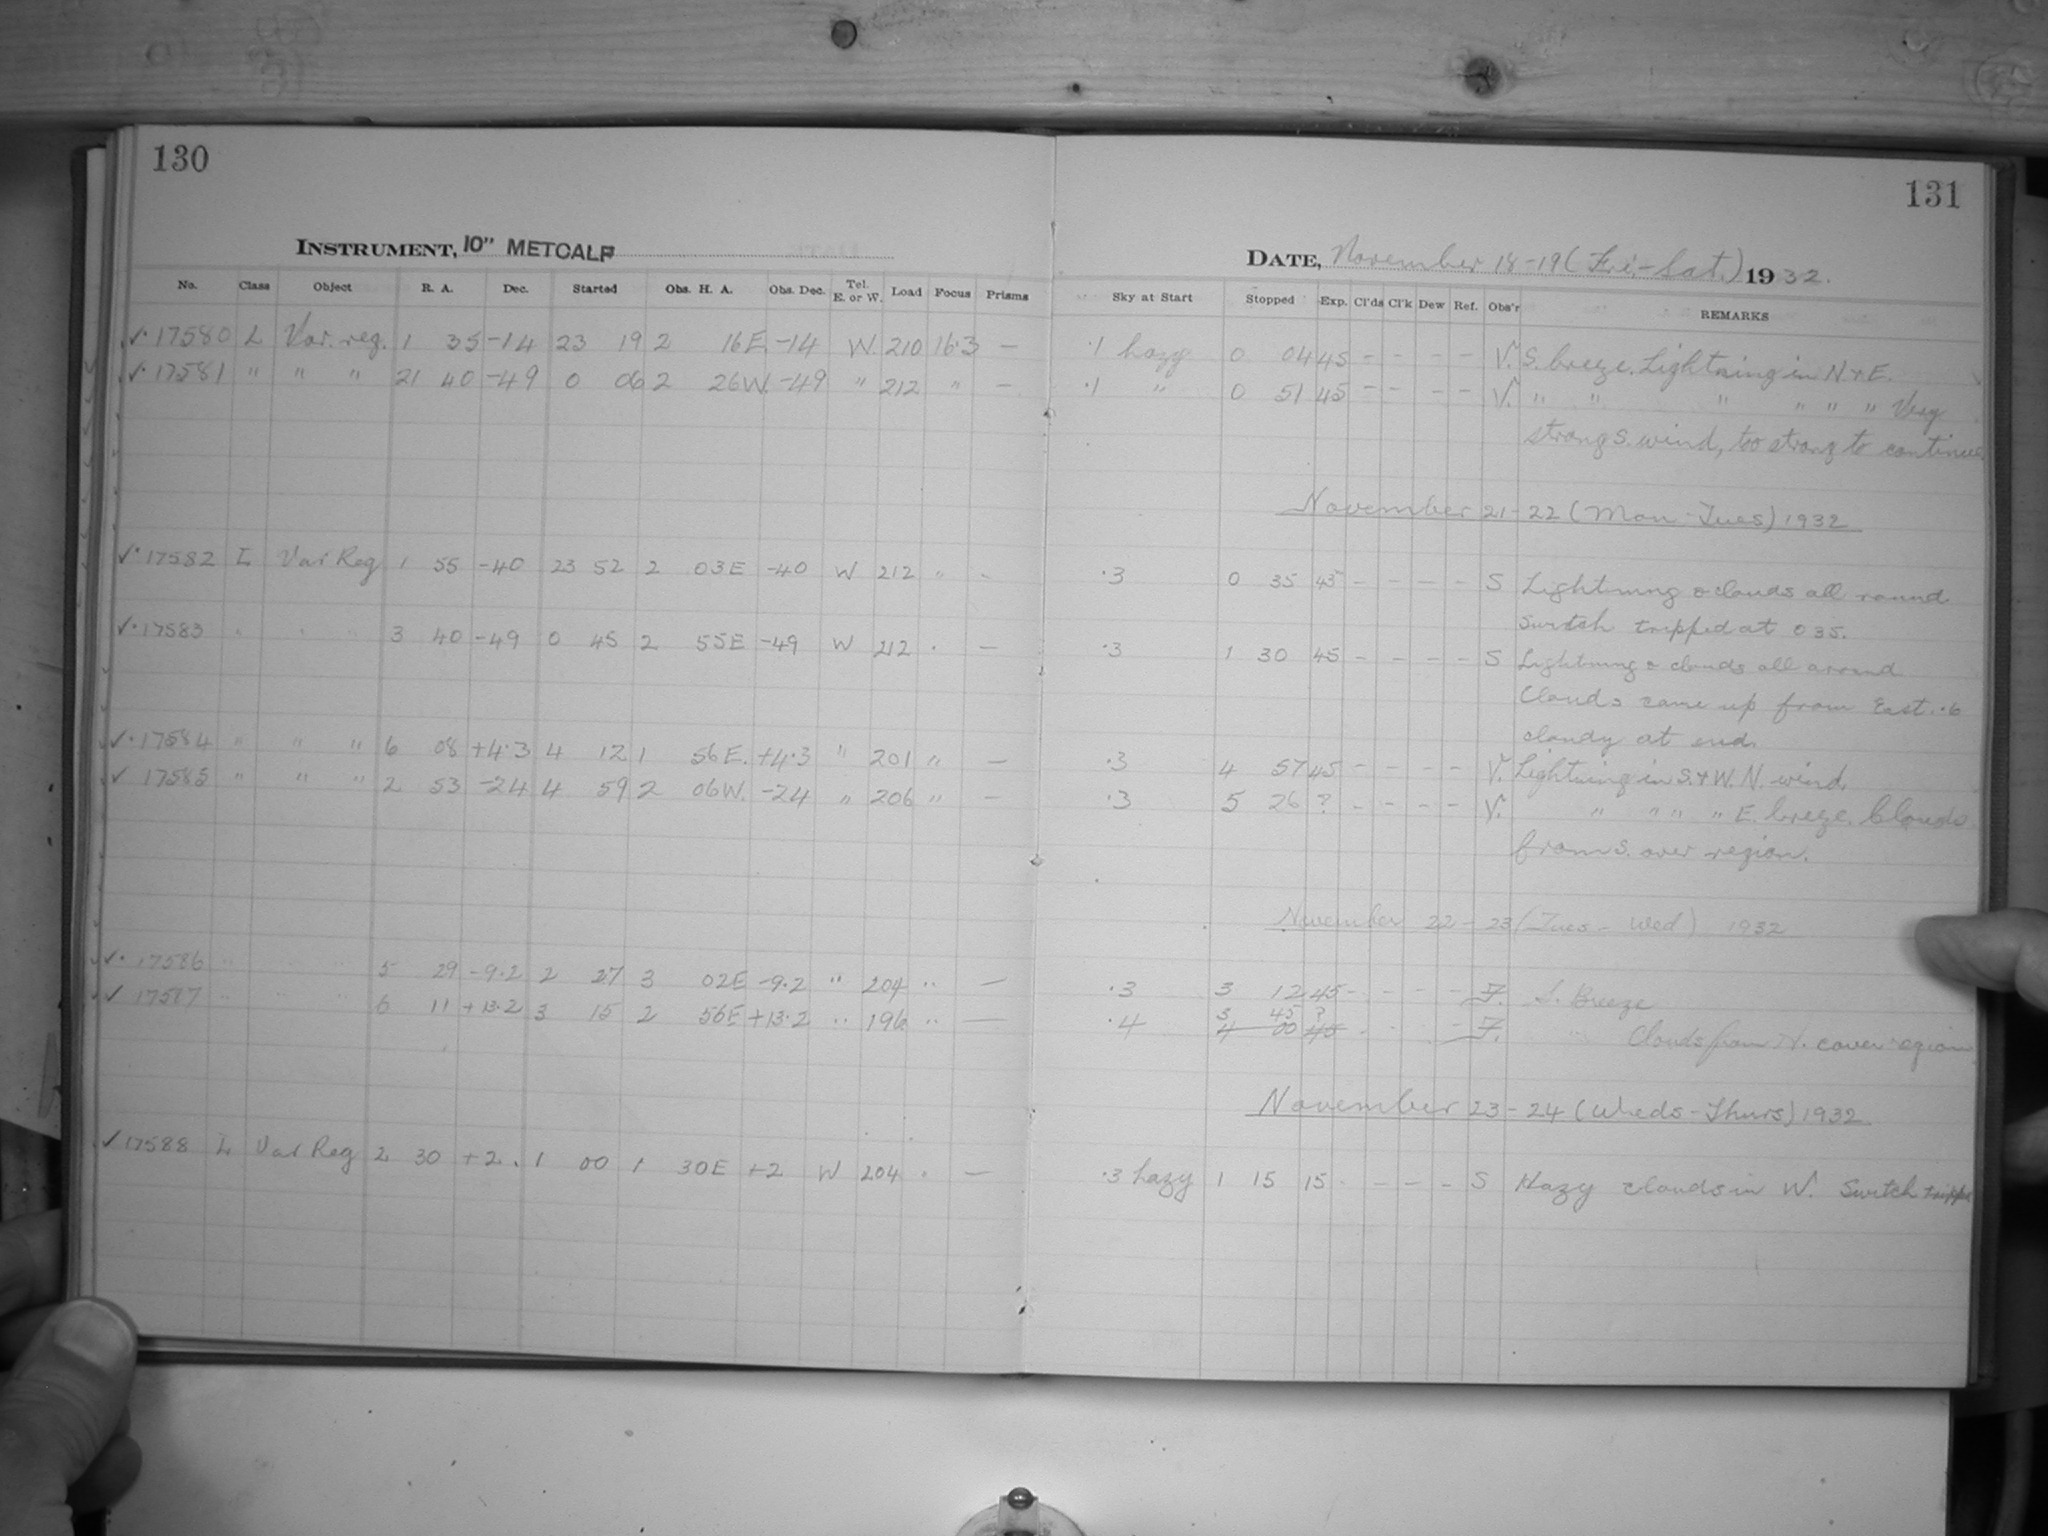 130
131
INSTRUMENT, 10" METCALF
DATE, November 18-19 (Fri.-Sat.) 1932.
No. Class Object R. A. Dec. Started Obs. H. A. Obs. Dec. Tel. E. or W. Load Focus Prisms Sky at Start Stopped Exp. Cl'ds Cl'k Dew Ref. Obs'r REMARKS
✓· 17580 L Var. reg. 1 35 -14 23 19 2 16E. -14 W. 210 16·3 — ·1 hazy 0 04 45 - - - - V. S. breeze. Lightning in N + E.
✓· 17581 " " " 21 40 -49 0 06 2 26W. -49 " 212 " — ·1 " 0 51 45 - - - - V. " " " " " " Very
strong S. wind, too strong to continue
November 21-22 (Mon-Tues) 1932
✓· 17582 L Var Reg 1 55 -40 23 52 2 03E -40 W 212 " - ·3 0 35 43 - - - - S Lightning & clouds all round
Switch tripped at 0 35.
✓· 17583 " " " 3 40 -49 0 45 2 55E -49 W 212 " — ·3 1 30 45 - - - - S Lightning & clouds all around
Clouds came up from East. ·6
cloudy at end.
✓· 17584 " " " 6 08 +4·3 4 12 1 56E. +4·3 " 201 " — ·3 4 57 45 - - - - V. Lightning in S. + W. N. wind.
✓ 17585 " " " 2 53 -24 4 59 2 06W. -24 " 206 " — ·3 5 26 ? - - - - V. " " " " E. breeze. Clouds
from S. over region.
November 22-23 (Tues - Wed) 1932
✓· 17586 " " " 5 29 -9·2 2 27 3 02E -9·2 " 204 " — ·3 3 12 45 - - - - F. S. Breeze
3 45 ?
✓ 17587 " " " 6 11 +13·2 3 15 2 56E +13·2 " 196 " — ·4 4 00 45 - - - - F. " Clouds from N. cover region
November 23-24 (Weds-Thurs) 1932
✓ 17588 L Var Reg 2 30 +2. 1 00 1 30E +2 W 204 " — ·3 hazy 1 15 15 - - - - S Hazy clouds in W. Switch tripped